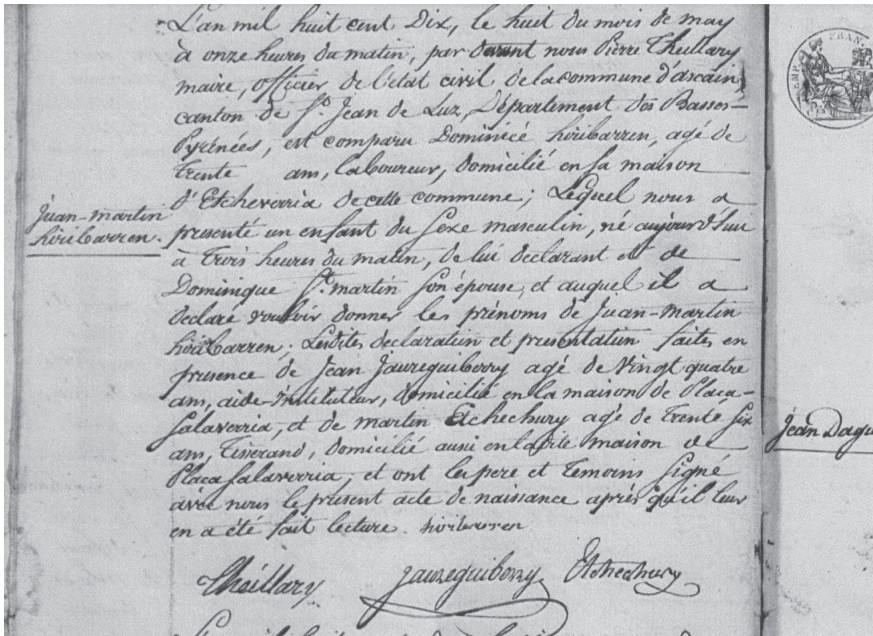 L'an mil huit cent Dix, le huit du mois de may
à onze heures du matin, par devant nous Pierre Theillary
maire, officier de l'état civil de la commune d'ascain,
canton de St. Jean de Luz, Département des Basses-
Pyrénées, est comparu Dominice hiribarren, agé de
trente ans, laboureur, domicilié en sa maison
d'Etcheverria de cette commune; Lequel nous a
Juan-martin
hiribarren.
presenté un enfant du sexe masculin, né aujourd'hui
à trois heures du matin, de lui declarant et de
Dominique St. martin son épouse, et auquel il a
declaré vouloir donner les prénoms de Juan-martin
hiribarren; Lesdites declaration et presentation faites en
presence de Jean Jaureguiberry agé de vingt quatre
ans, aide-instituteur, domicilié en la maison de Placa-
Salaverria, et de martin Etchechury agé de trente six
ans, Tisserand, domicilié aussi en ladite maison de
Placa Salaverria; et ont les pere et temoins signé
avec nous le present acte de naissance après qu'il leur
en a été fait lecture. hiribarren
Theillary Jaureguiberry Etchechury
EMP. FRAN.
Jean Dagu